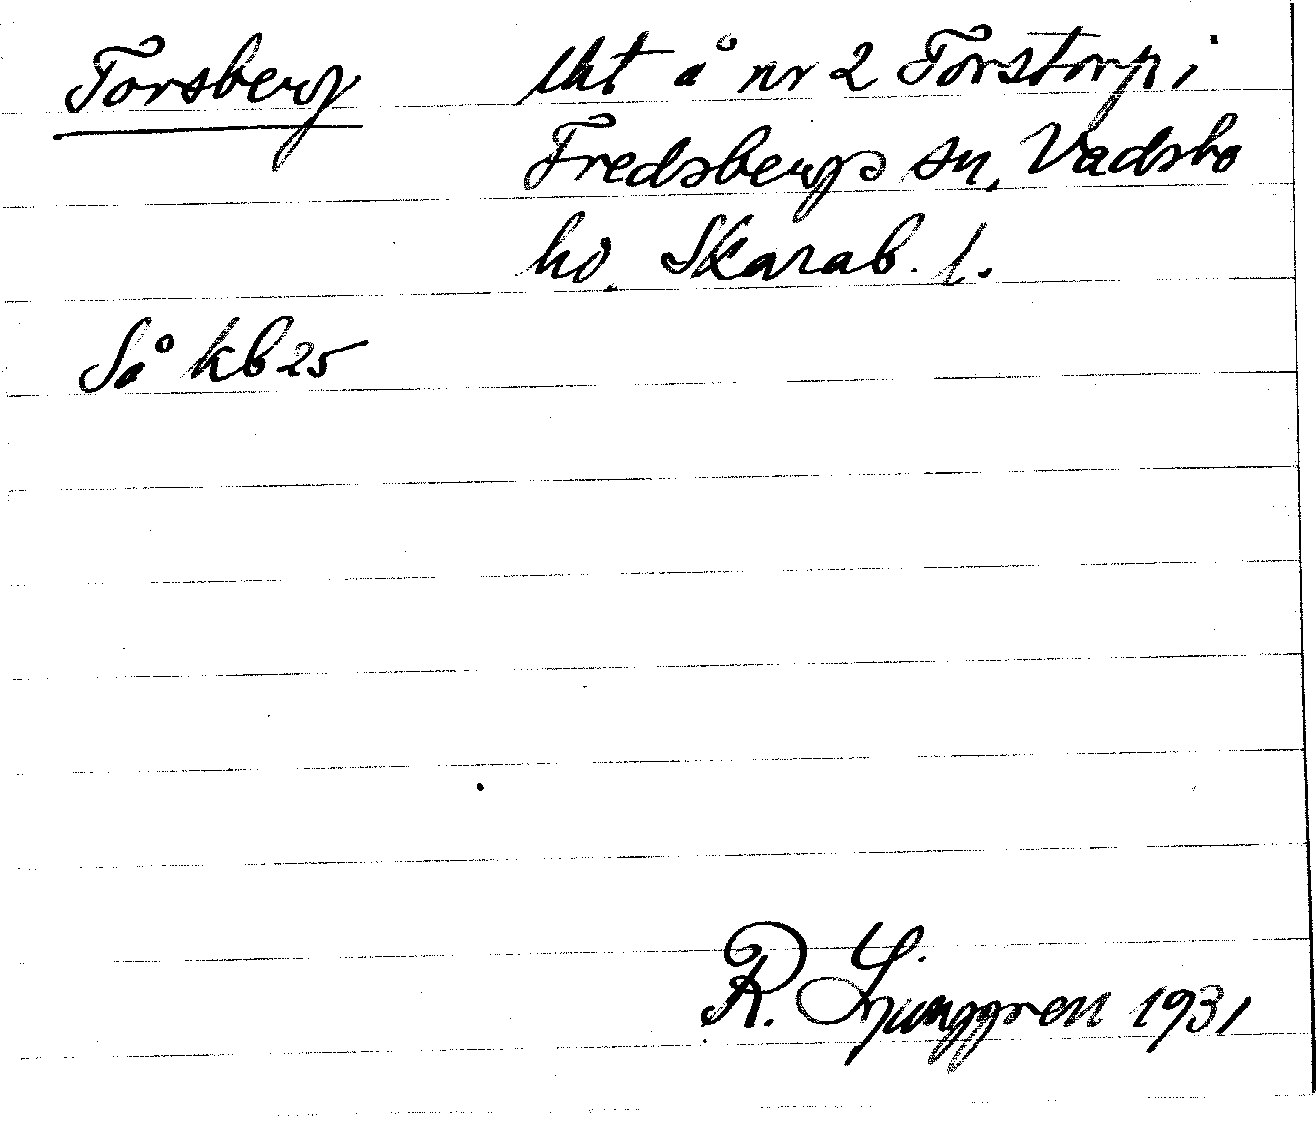 Torsberg lht å nr 2 Torstorp i
Fredsbergs sn, Vadsbo
hd. Skarab. l.
Så kb 25
R. Ljunggren 1931